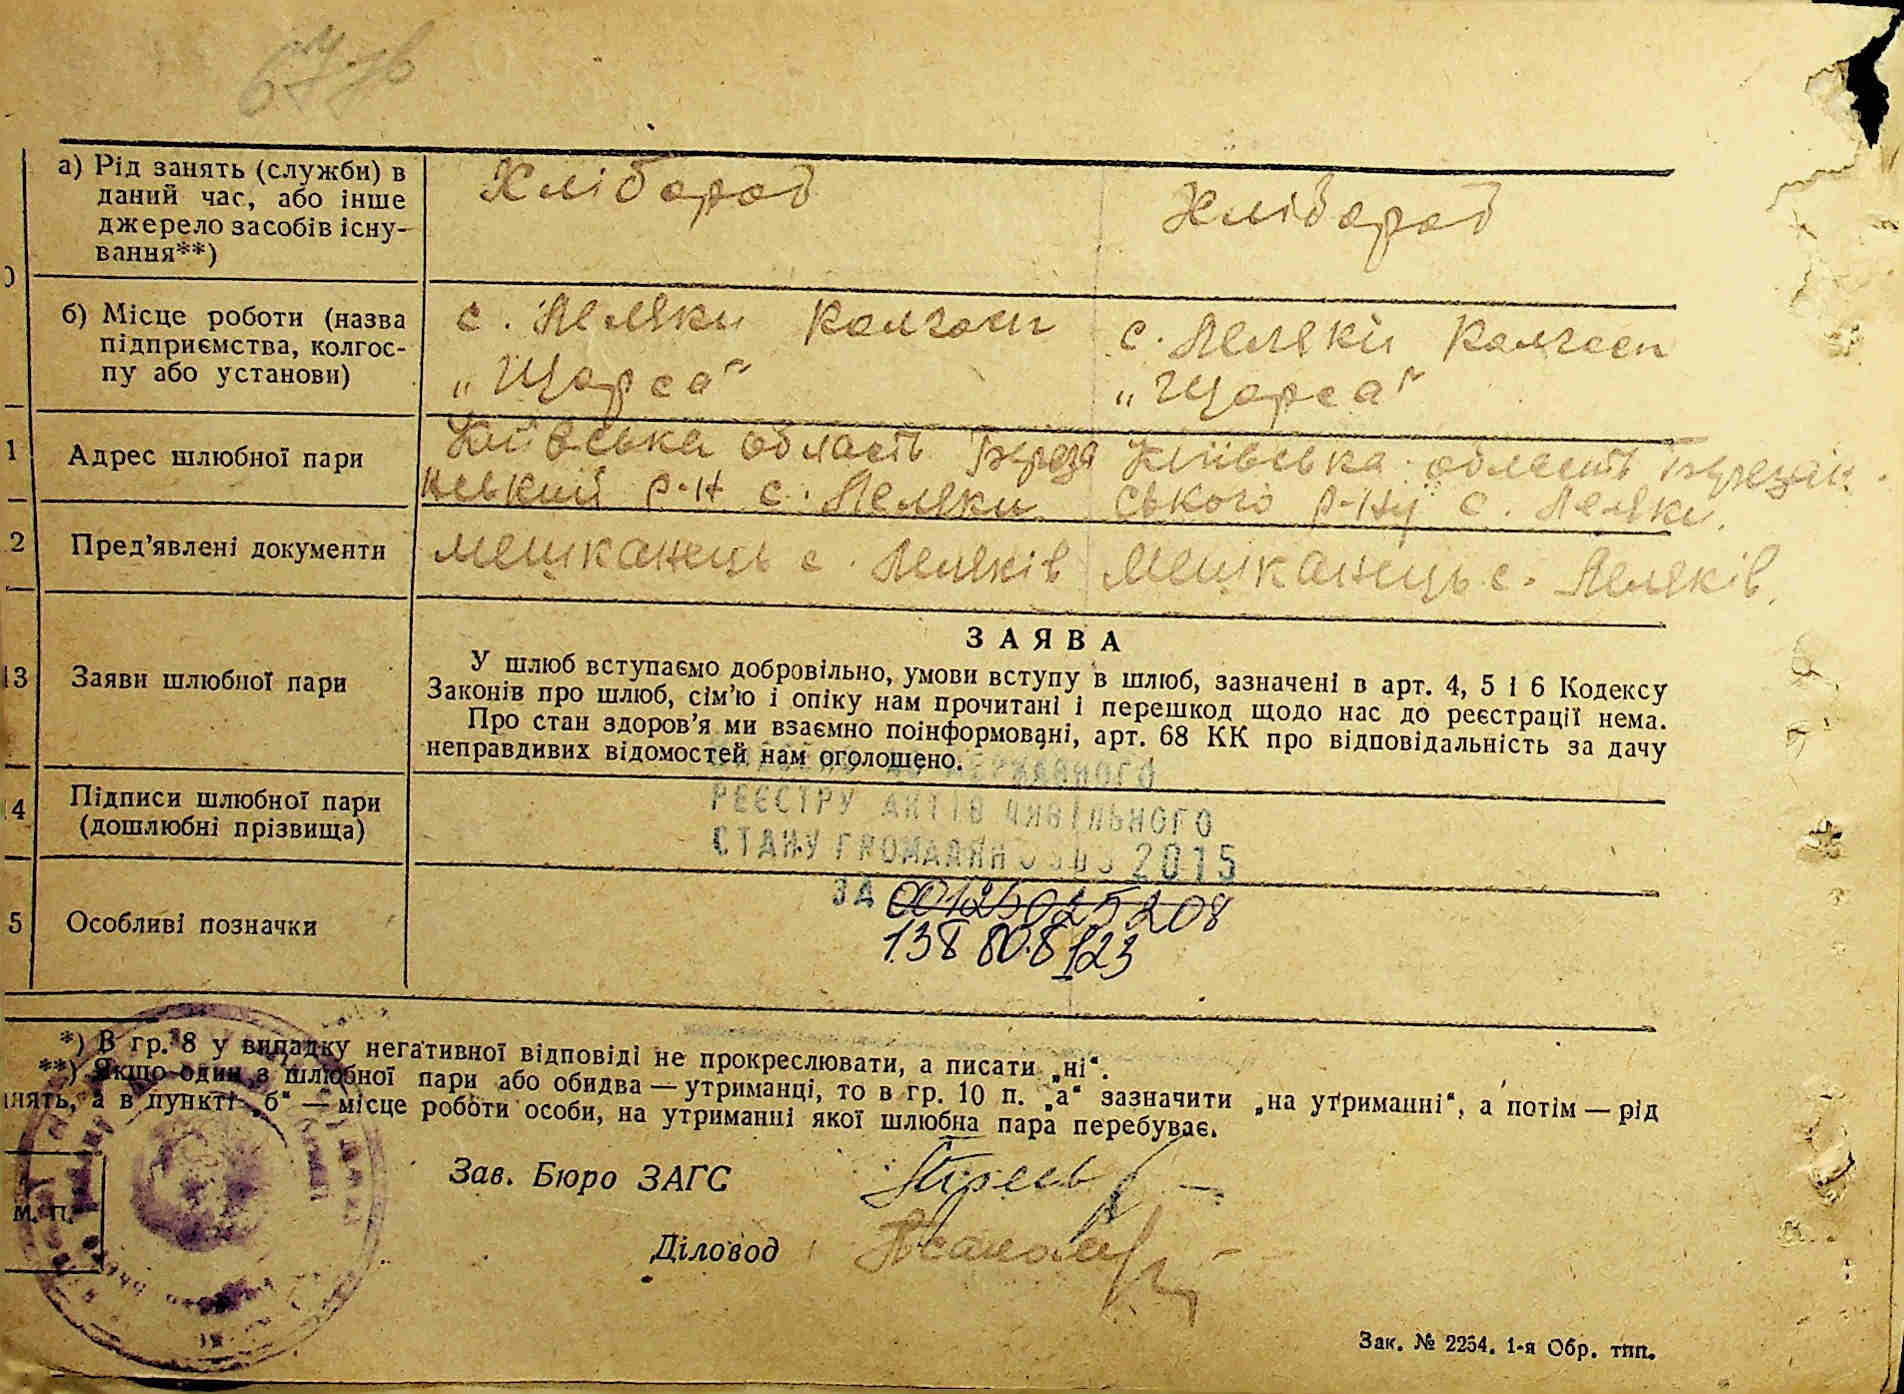 а) Рід занять (служби) в
даний час, або інше
джерело засобів існу-
вання**)
Хлібороб
Хлібороб
б) Місце роботи (назва
підприємства, колгос-
пу або установи)
с. Леляки колгосп
„Щорса“
с. Леляки колгосп
„Щорса“
1
Адрес шлюбної пари
Київська область Береза
нський р-н с. Леляки
Київська область Березан
ського р-ну с. Леляки.
2
Пред’явлені документи
мешканець с. Леляків
Мешканець с. Леляків
13
Заяви шлюбної пари
ЗАЯВА
У шлюб вступаємо добровільно, умови вступу в шлюб, зазначені в арт. 4, 5 і 6 Кодексу
Законів про шлюб, сім’ю і опіку нам прочитані і перешкод щодо нас до реєстрації нема.
Про стан здоров’я ми взаємно поінформовані, арт. 68 КК про відповідальність за дачу
неправдивих відомостей нам оголошено.
ДЕРЖАВНОГО
РЕЄСТРУ АКТІВ ЦИВІЛЬНОГО
СТАНУ ГРОМАДЯН 2015
ЗА 00125025208
138 808 123
14
Підписи шлюбної пари
(дошлюбні прізвища)
5
Особливі позначки
*) В гр. 8 у випадку негативної відповіді не прокреслювати, а писати „ні“.
**) Якщо один з шлюбної пари або обидва — утриманці, то в гр. 10 п. „а“ зазначити „на утриманні“, а потім — рід
нять, а в пункті „б“ — місце роботи особи, на утриманні якої шлюбна пара перебуває.
Зав. Бюро ЗАГС
М. П.
Діловод
Зак. № 2254. 1-я Обр. тип.